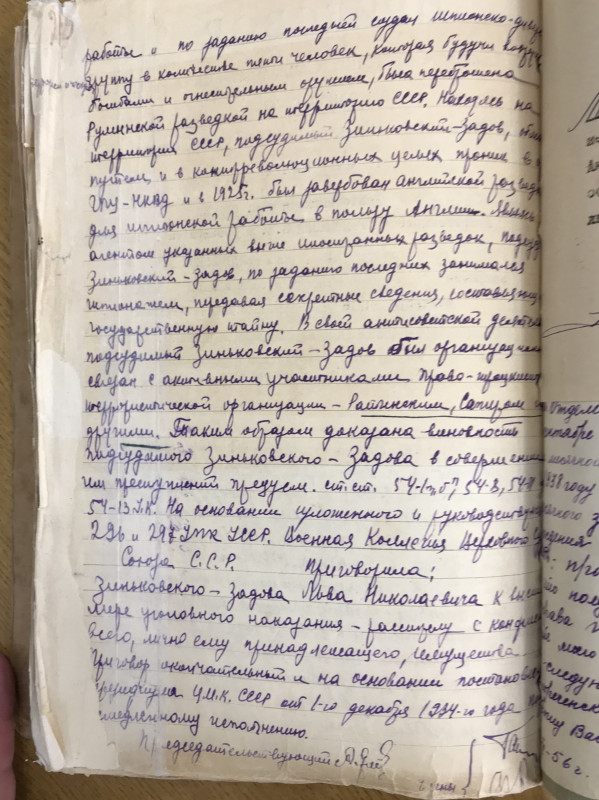 работы и по заданию последней создал шпионско-дивер
группу в количестве пяти человек, которая будучи
бомбами и огнестрельным оружием, была переброшена
Румынской разведкой на территорию СССР. Находясь на
территории СССР, подсудимый Зиньковский-Задов,
путем и в контрреволюционных целях проник в о
ГПУ-НКВД и в 1925г. был завербован английской развед
для шпионской работы в пользу Англии. Являясь
агентом указанных выше иностранных разведок, подсуд
Зиньковский-Задов, по заданию последних занимался
шпионажем, передавая секретные сведения, составляющ
государственную тайну. В своей антисоветской деятель
подсудимый Зиньковский-Задов был организационно
связан с активными участниками право-троцкист
террористической организации - Рапынским, Сапиром и
другими. Таким образом доказана виновность
подсудимого Зиньковского-Задова в совершении
им преступлений предусм. ст.ст. 54-1 п."б", 54-8, 54-11
54-13 У.К. На основании изложенного и руководствуясь
296 и 297 УПК УССР. Военная Коллегия Верховного Суда
Союза С.С.Р. приговорила:
Зиньковского-Задова Льва Николаевича к высшей
мере уголовного наказания - расстрелу с конфиск
всего, лично ему принадлежащего, имущества
Приговор окончательный и на основании постановл
президиума Ц.И.К. СССР от 1-го декабря 1934-го года
немедленному исполнению.
Председательствующий
Члены
отделе
октябре
1938 году
-56г.